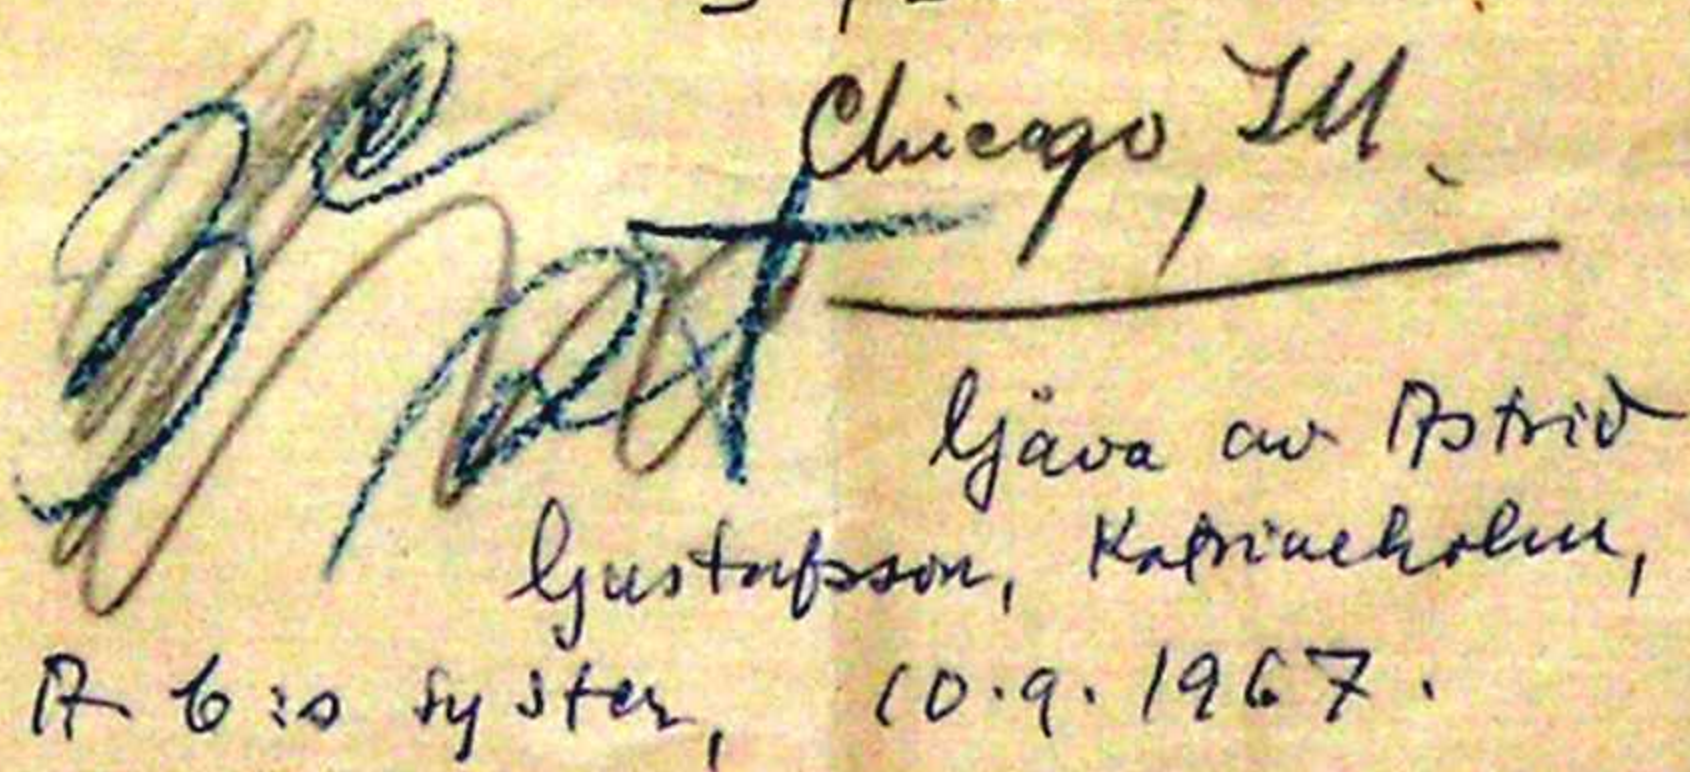 Chicago, Ill.
Gåva av Astrid
Gustafsson, Katrineholm,
A G:s syster, 10.9.1967.